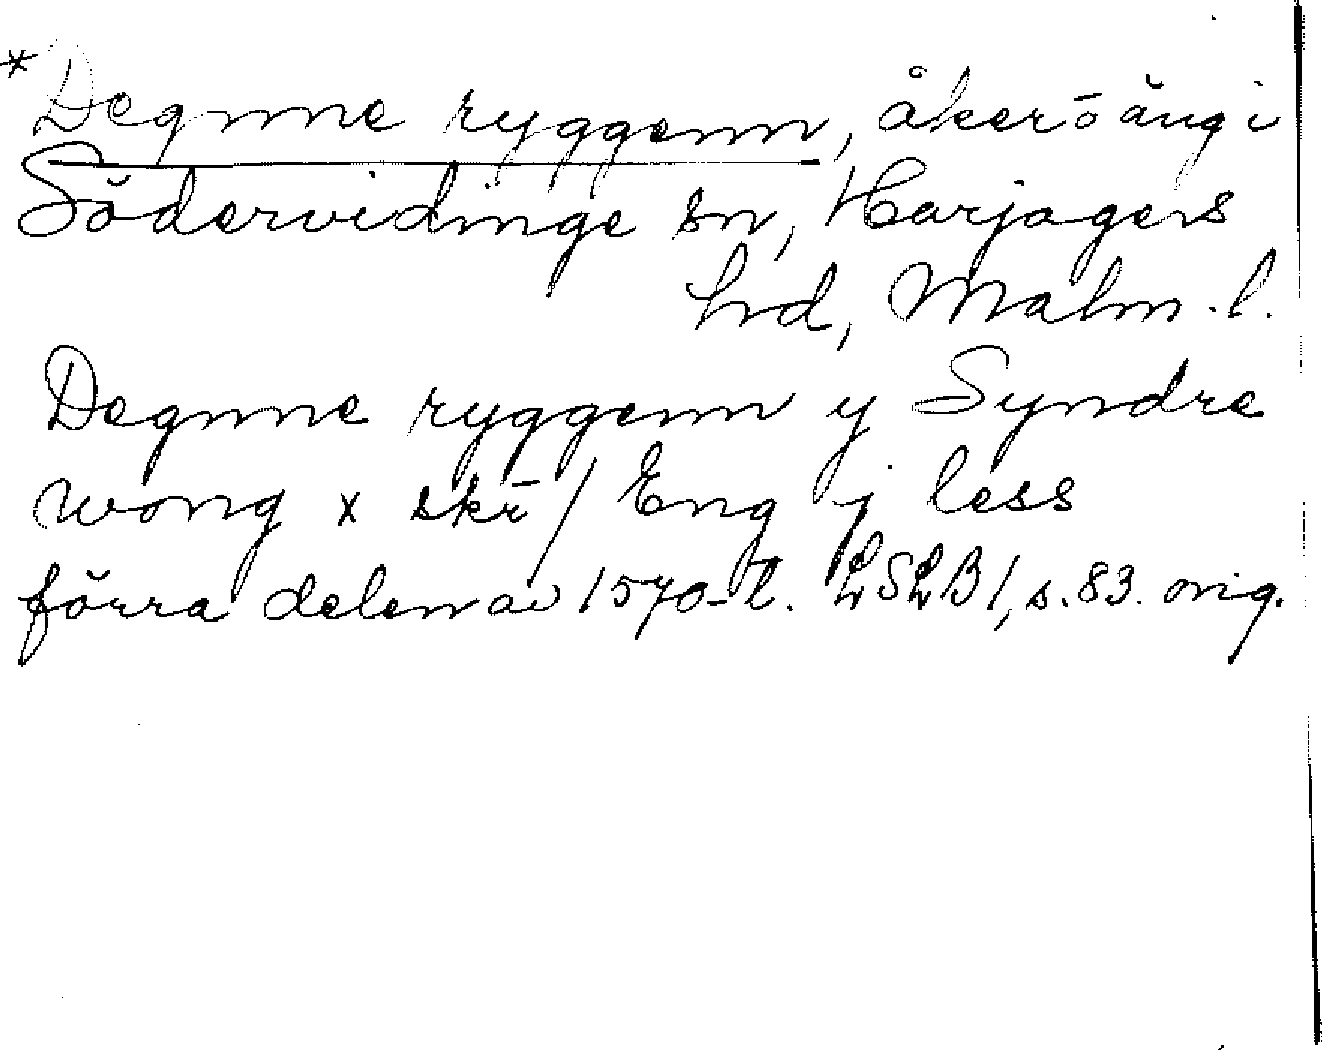 *Degnne ryggenn, åker o äng i
Södervidinge sn, Harjagers
hd, Malm. l.
Degnne ryggenn y Syndre
wong x skr̄ / Eng j less
förra delen av 1570-t. LSLB 1, s. 83. orig.